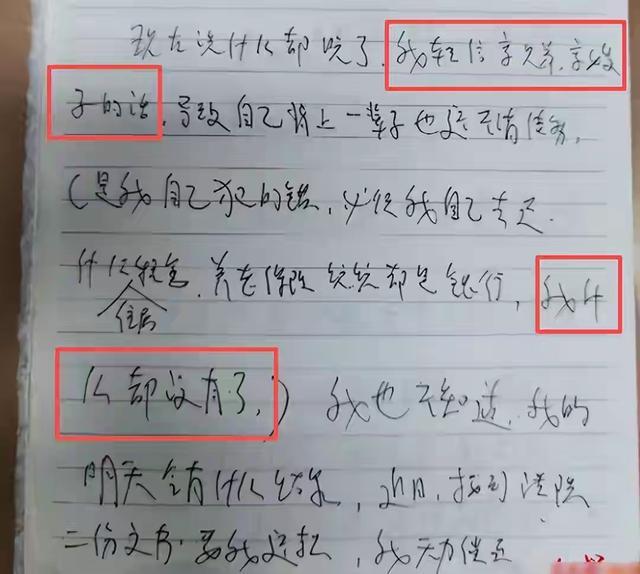 现在说什么都晚了,我轻信
子的话,导致自己背上一辈子也还不清债务,
(是我自己犯的错,必须我自己去还.
什么 养老保险 统统都是银行,我什
住房
么都没有了,) 我也不知道,我的
明天会有什么结果,近日,接到法院
二份文书 要我还款,我无力偿还